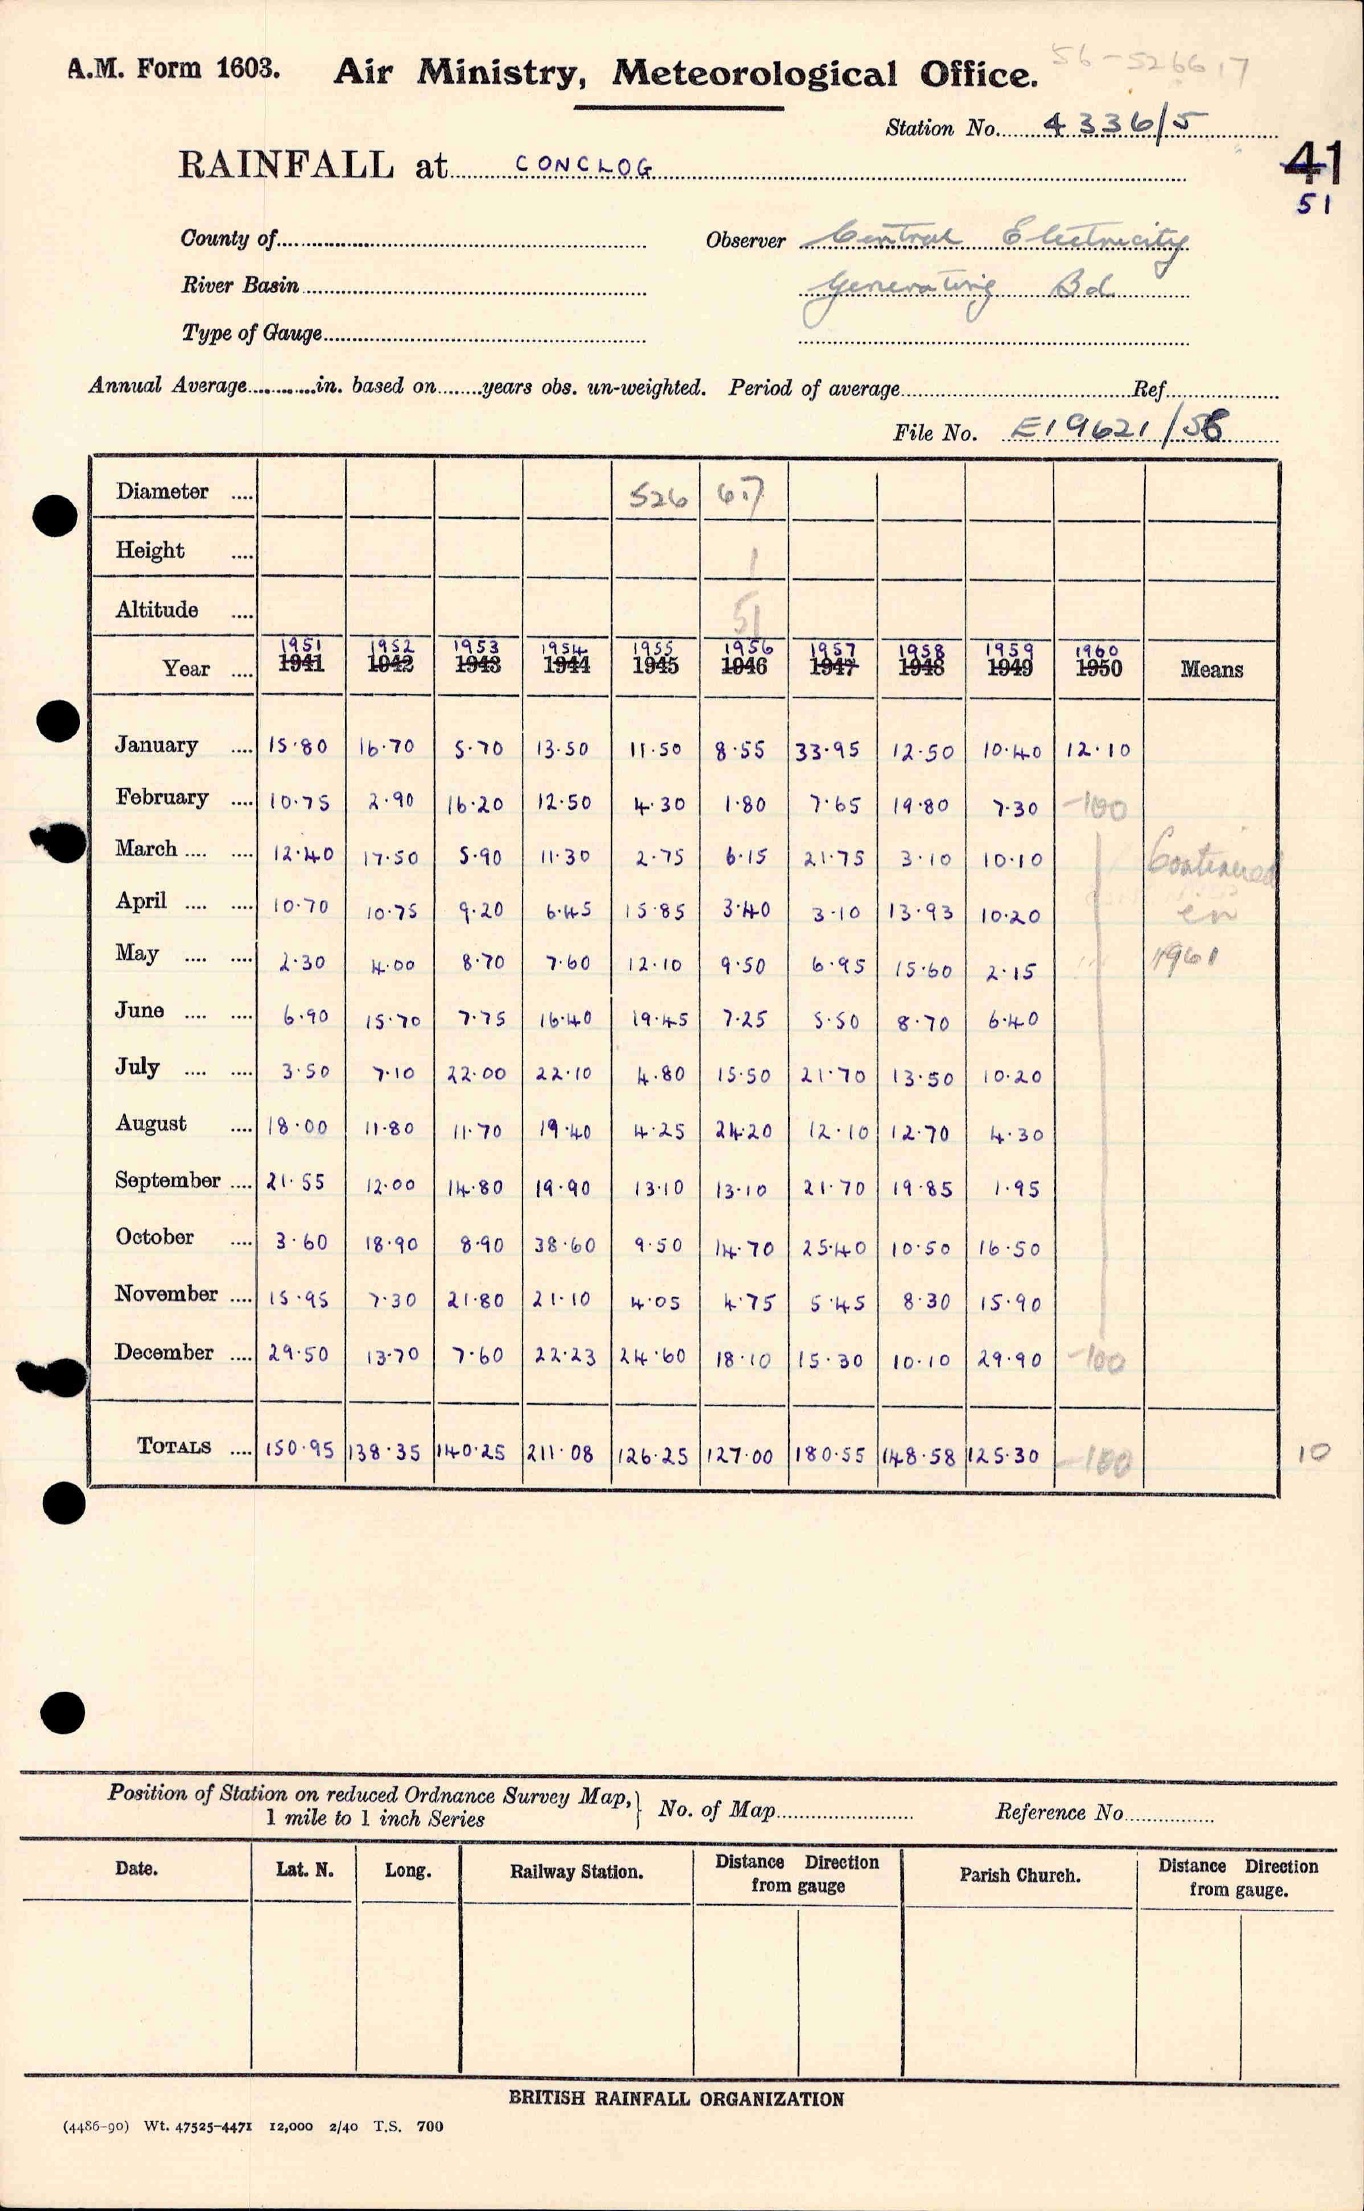 56-526617
A.M. Form 1603. Air Ministry, Meteorological Office.
Station No. 4336/5
RAINFALL at CONCLOG 41
51
County of Observer Central Electricity
River Basin Generating Bd
Type of Gauge
Annual Average in. based on years obs. un-weighted. Period of average Ref.
File No. E19621/58
Diameter .... 526 6.7
Height .... 1
Altitude .... 51
1951 1952 1953 1954 1955 1956 1957 1958 1959 1960
Year .... 1941 1942 1943 1944 1945 1946 1947 1948 1949 1950 Means
January .... 15.80 16.70 5.70 13.50 11.50 8.55 33.95 12.50 10.40 12.10
February .... 10.75 2.90 16.20 12.50 4.30 1.80 7.65 19.80 7.30 -100
March .... .... 12.40 17.50 5.90 11.30 2.75 6.15 21.75 3.10 10.10 Continued
April .... .... 10.70 10.75 9.20 6.45 15.85 3.40 3.10 13.93 10.20 en
May .... .... 2.30 4.00 8.70 7.60 12.10 9.50 6.95 15.60 2.15 1961
June .... .... 6.90 15.70 7.75 16.40 19.45 7.25 5.50 8.70 6.40
July .... .... 3.50 7.10 22.00 22.10 4.80 15.50 21.70 13.50 10.20
August .... 18.00 11.80 11.70 19.40 4.25 24.20 12.10 12.70 4.30
September .... 21.55 12.00 14.80 19.90 13.10 13.10 21.70 19.85 1.95
October .... 3.60 18.90 8.90 38.60 9.50 14.70 25.40 10.50 16.50
November .... 15.95 7.30 21.80 21.10 4.05 4.75 5.45 8.30 15.90
December .... 29.50 13.70 7.60 22.23 24.60 18.10 15.30 10.10 29.90 -100
TOTALS .... 150.95 138.35 140.25 211.08 126.25 127.00 180.55 148.58 125.30 -100 10
Position of Station on reduced Ordnance Survey Map, } No. of Map Reference No.
1 mile to 1 inch Series
Date. Lat. N. Long. Railway Station. Distance Direction from gauge Parish Church. Distance Direction from gauge.
BRITISH RAINFALL ORGANIZATION
(4486-90) Wt. 47525-4471 12,000 2/40 T.S. 700